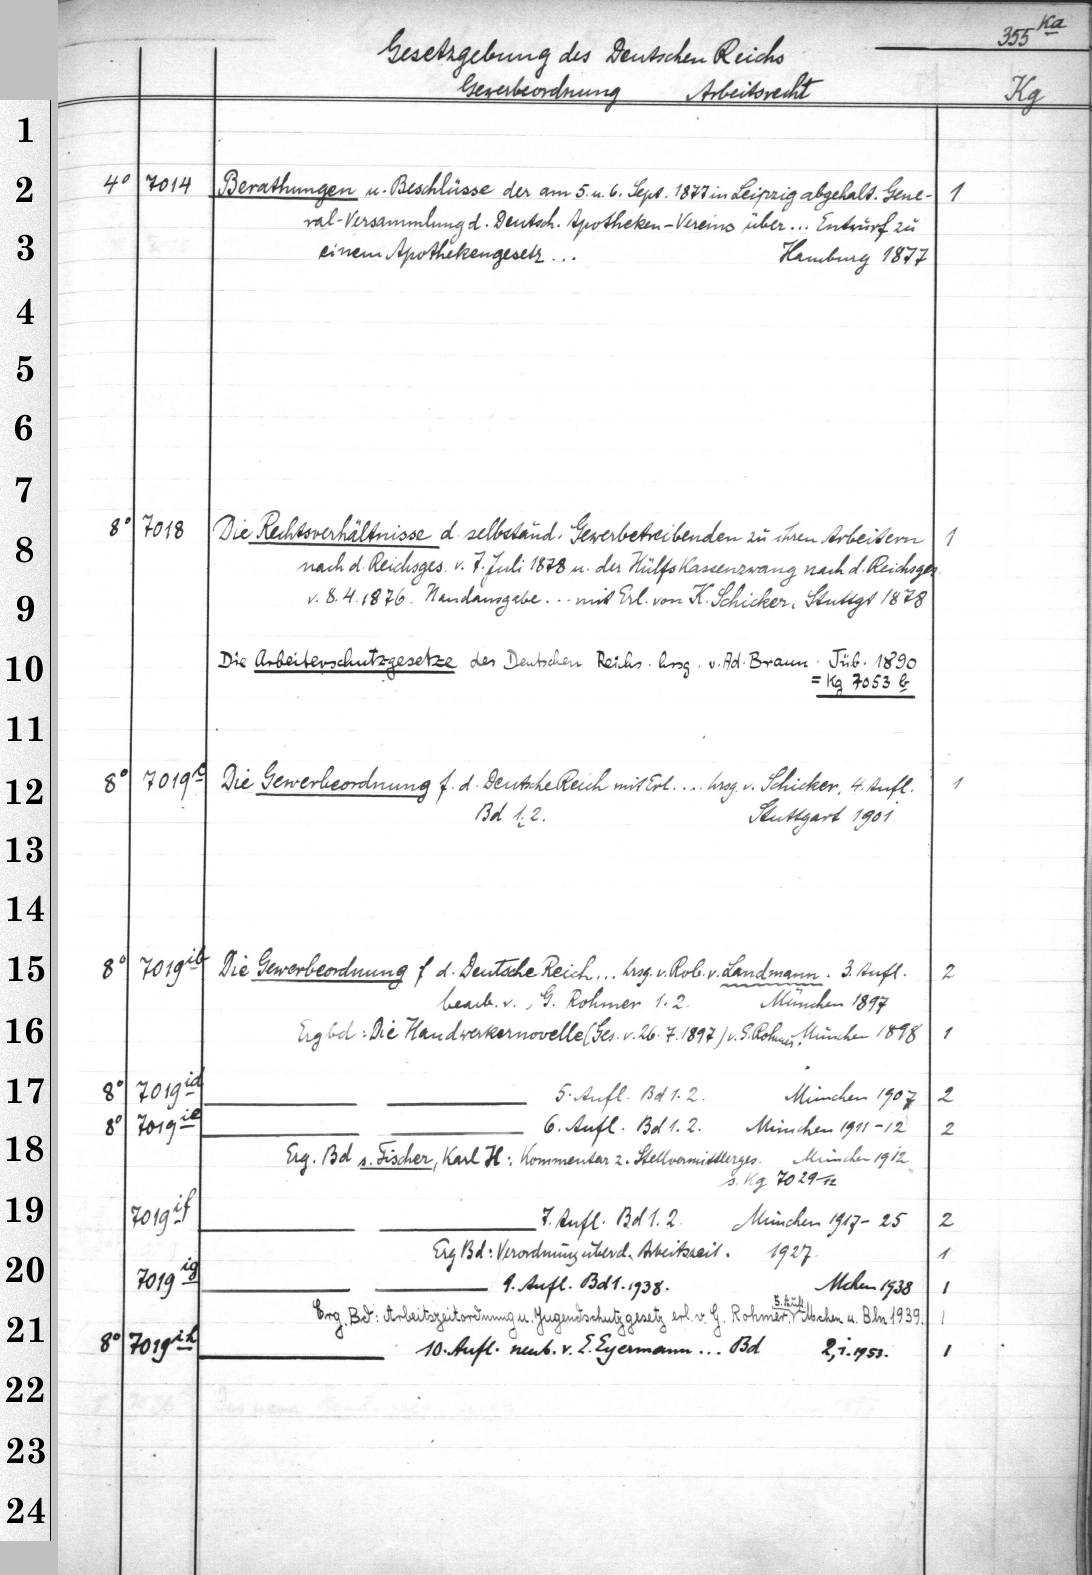 355 Ka
Gesetzgebung des Deutschen Reichs
Gewerbeordnung Arbeitsrecht Kg
1
2 4° 7014 Berathungen u. Beschlüsse der am 5. u. 6. Sept. 1877 in Leipzig abgehalt. Gene- 1
ral-Versammlung d. Deutsch. Apotheken-Vereins über... Entwurf zu
3 einem Apothekengesetz ... Hamburg 1877
4
5
6
7
8 8° 7018 Die Rechtsverhältnisse d. selbständ. Gewerbetreibenden zu ihren Arbeitern 1
nach d. Reichsges. v. 7. Juli 1878 u. der Hülfskassenzwang nach d. Reichsges.
9 v. 8.4.1876. Handausgabe... mit Erl. von K. Schicker. Stuttgt 1878
10 Die Arbeiterschutzgesetze des Deutschen Reichs. hrsg. v. Ad. Braun. Tüb. 1890
= Kg 7053 b
11
12 8° 7019 Die Gewerbeordnung f. d. Deutsche Reich mit Erl.... hrsg. v. Schicker. 4. Aufl. 1
Bd 1. 2. Stuttgart 1901
13
14
15 8° 7019 ib Die Gewerbeordnung f d. Deutsche Reich... hrsg. v. Rob. v. Landmann. 3. Aufl. 2
bearb. v. G. Rohmer 1. 2. München 1897
16 Ergbd: Die Handwerkernovelle (Ges. v. 26.7.1897) v. G. Rohmer. München 1898 1
17 8° 7019 id 5. Aufl. Bd 1. 2. München 1907 2
8° 7019 ie 6. Aufl. Bd 1. 2. München 1911-12 2
18 Erg. Bd s. Fischer, Karl H: Kommentar z. Stellvermittlerges. München 1912
s. Kg 7029
19 7019 if 7. Aufl. Bd 1. 2. München 1917-25 2
Erg Bd: Verordnung über d. Arbeitszeit. 1927. 1
20 7019 ig 9. Aufl. Bd 1. 1938. Mchen 1938 1
5. Aufl.
21 Erg. Bd: Arbeitszeitordnung u. Jugendschutzgesetz erl. v. G. Rohmer. Mchen u. Bln 1939. 1
8° 7019 ih 10. Aufl. neub. v. E. Eyermann ... Bd 2,1. 1953. 1
22
23
24